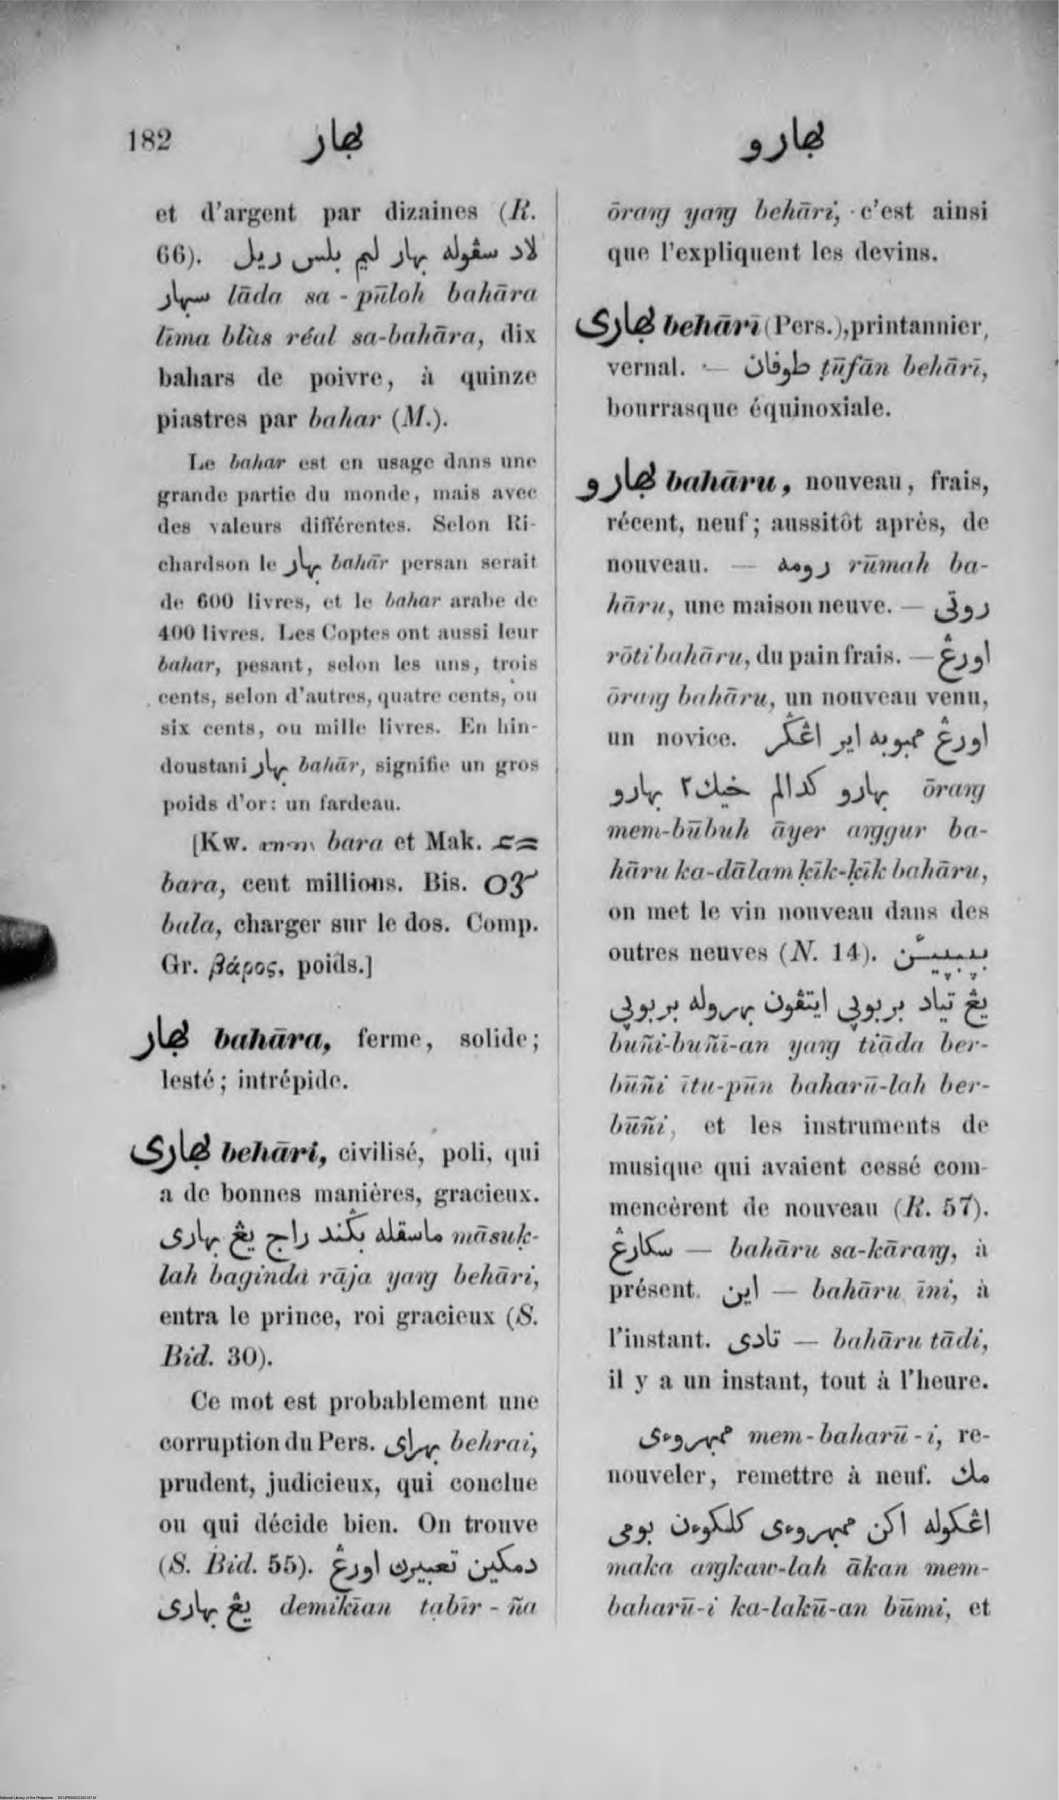 182 بهار
بهارو
et d'argent par dizaines (R.
66). لاد سڤوله بهار ليم بلس ريل
سبهار lāda sa - pūloh bahāra
līma blàs réal sa-bahāra, dix
bahars de poivre, à quinze
piastres par bahar (M.).
Le bahar est en usage dans une
grande partie du monde, mais avec
des valeurs différentes. Selon Ri-
chardson le بهار bahār persan serait
de 600 livres, et le bahar arabe de
400 livres. Les Coptes ont aussi leur
bahar, pesant, selon les uns, trois
cents, selon d'autres, quatre cents, ou
six cents, ou mille livres. En hin-
doustani بهار bahār, signifie un gros
poids d'or: un fardeau.
[Kw. bara et Mak.
bara, cent millions. Bis.
bala, charger sur le dos. Comp.
Gr. βάρος, poids.]
بهار bahāra, ferme, solide;
lesté; intrépide.
بهاری behāri, civilisé, poli, qui
a de bonnes manières, gracieux.
ماسقله بݢند راج يڠ بهاری māsuḳ-
lah baginda rāja yaŋg behāri,
entra le prince, roi gracieux (S.
Bid. 30).
Ce mot est probablement une
corruption du Pers. بهرای behrai,
prudent, judicieux, qui conclue
ou qui décide bien. On trouve
(S. Bid. 55). دمكين تعبيرڽ اورڠ
يڠ بهاری demikīan tạbīr - ña
ōraŋg yaŋg behāri, c'est ainsi
que l'expliquent les devins.
بهاری behārī (Pers.), printannier,
vernal. — طوفان ṭūfān behārī,
bourrasque équinoxiale.
بهارو bahāru, nouveau, frais,
récent, neuf; aussitôt après, de
nouveau. — رومه rūmah ba-
hāru, une maison neuve. — روتی
rōti bahāru, du pain frais. — اورڠ
ōraŋg bahāru, un nouveau venu,
un novice. اورڠ ممبوبه اير اڠݢر
بهارو كدالم خيك٢ بهارو ōraŋg
mem-būbuh āyer aŋggur ba-
hāru ka-dālam ḳīk-ḳīk bahāru,
on met le vin nouveau dans des
outres neuves (N. 14).
يڠ تياد بربوڽي ايتڤون بهروله بربوڽي
buñi-buñi-an yaŋg tiāda ber-
būñi ītu-pūn baharū-lah ber-
būñi, et les instruments de
musique qui avaient cessé com-
mencèrent de nouveau (R. 57).
سكارڠ — bahāru sa-kāraŋg, à
présent. اين — bahāru īni, à
l'instant. تادی — bahāru tādi,
il y a un instant, tout à l'heure.
ممبهروءی mem-baharū-i, re-
nouveler, remettre à neuf. مك
اڠكوله اكن ممبهروءی كلكوءن بومی
maka aŋgkaw-lah ākan mem-
baharū-i ka-lakū-an būmi, et